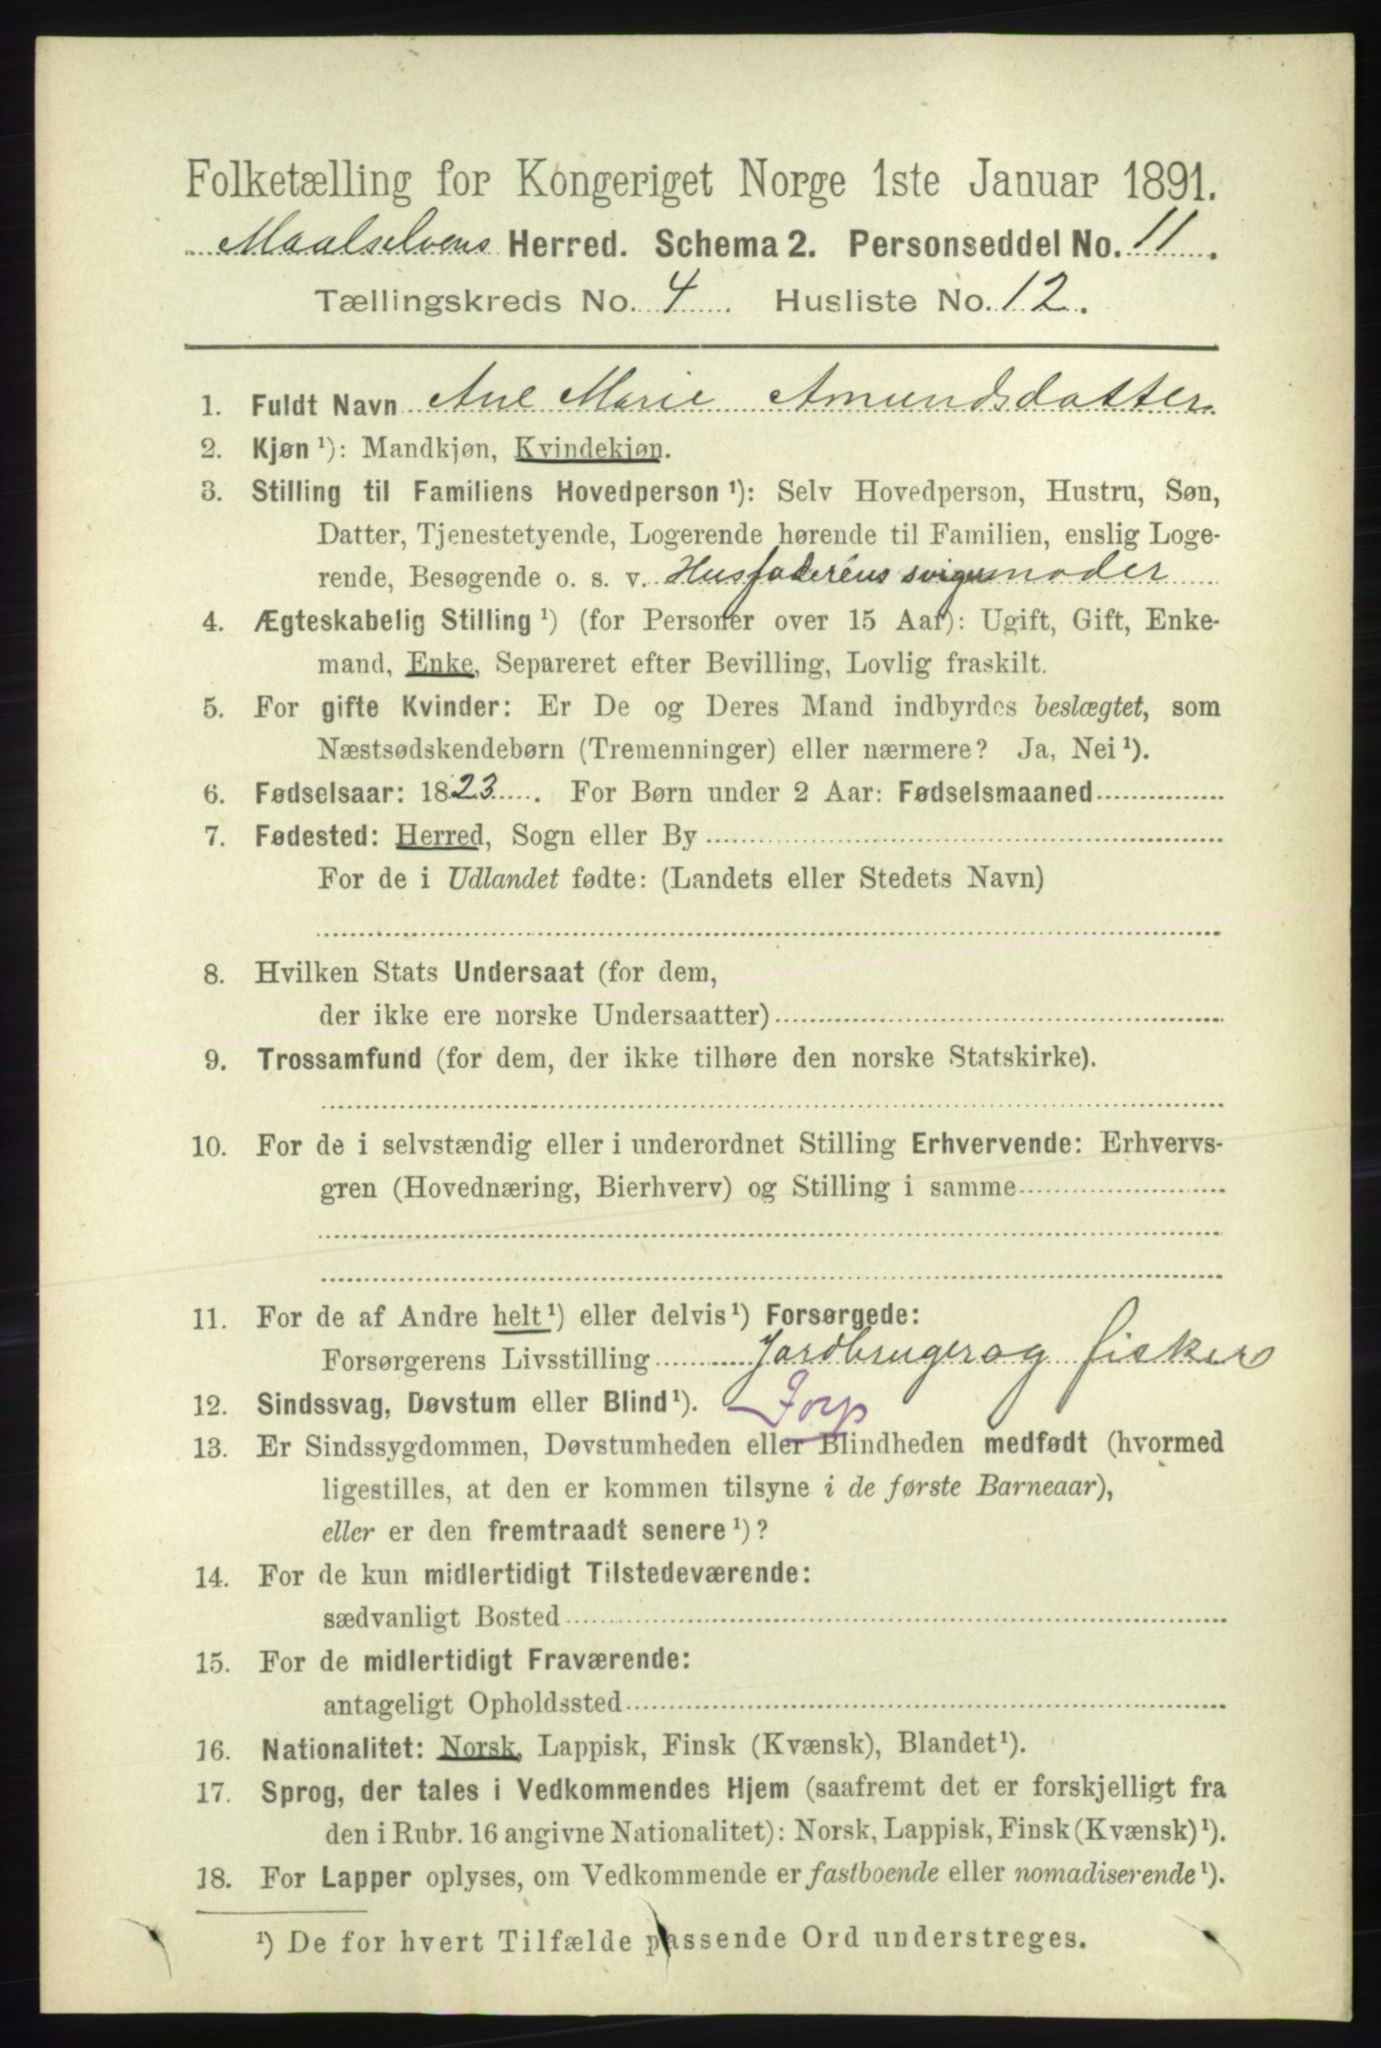 Folketælling for Kongeriget Norge 1ste Januar 1891.
Maalselvens Herred. Schema 2. Personseddel No. 11.
Tællingskreds No. 4. Husliste No. 12.
1. Fuldt Navn Ane Marie Amundsdatter
2. Kjøn ¹): Mandkjøn, Kvindekjøn.
3. Stilling til Familiens Hovedperson ¹): Selv Hovedperson, Hustru, Søn,
Datter, Tjenestetyende, Logerende hørende til Familien, enslig Loge-
rende, Besøgende o. s. v. Husfaderens svigermoder
4. Ægteskabelig Stilling ¹) (for Personer over 15 Aar): Ugift, Gift, Enke-
mand, Enke, Separeret efter Bevilling, Lovlig fraskilt.
5. For gifte Kvinder: Er De og Deres Mand indbyrdes beslægtet, som
Næstsødskendebørn (Tremenninger) eller nærmere? Ja, Nei ¹).
6. Fødselsaar: 1823. For Børn under 2 Aar: Fødselsmaaned
7. Fødested: Herred, Sogn eller By
For de i Udlandet fødte: (Landets eller Stedets Navn)
8. Hvilken Stats Undersaat (for dem,
der ikke ere norske Undersaatter)
9. Trossamfund (for dem, der ikke tilhøre den norske Statskirke).
10. For de i selvstændig eller i underordnet Stilling Erhvervende: Erhvervs-
gren (Hovednæring, Bierhverv) og Stilling i samme
11. For de af Andre helt ¹) eller delvis ¹) Forsørgede:
Forsørgerens Livsstilling Jordbruger og fisker
12. Sindssvag, Døvstum eller Blind ¹). Fors
13. Er Sindssygdommen, Døvstumheden eller Blindheden medfødt (hvormed
ligestilles, at den er kommen tilsyne i de første Barneaar),
eller er den fremtraadt senere ¹)?
14. For de kun midlertidigt Tilstedeværende:
sædvanligt Bosted
15. For de midlertidigt Fraværende:
antageligt Opholdssted
16. Nationalitet: Norsk, Lappisk, Finsk (Kvænsk), Blandet ¹).
17. Sprog, der tales i Vedkommendes Hjem (saafremt det er forskjelligt fra
den i Rubr. 16 angivne Nationalitet): Norsk, Lappisk, Finsk (Kvænsk) ¹).
18. For Lapper oplyses, om Vedkommende er fastboende eller nomadiserende ¹).
¹) De for hvert Tilfælde passende Ord understreges.